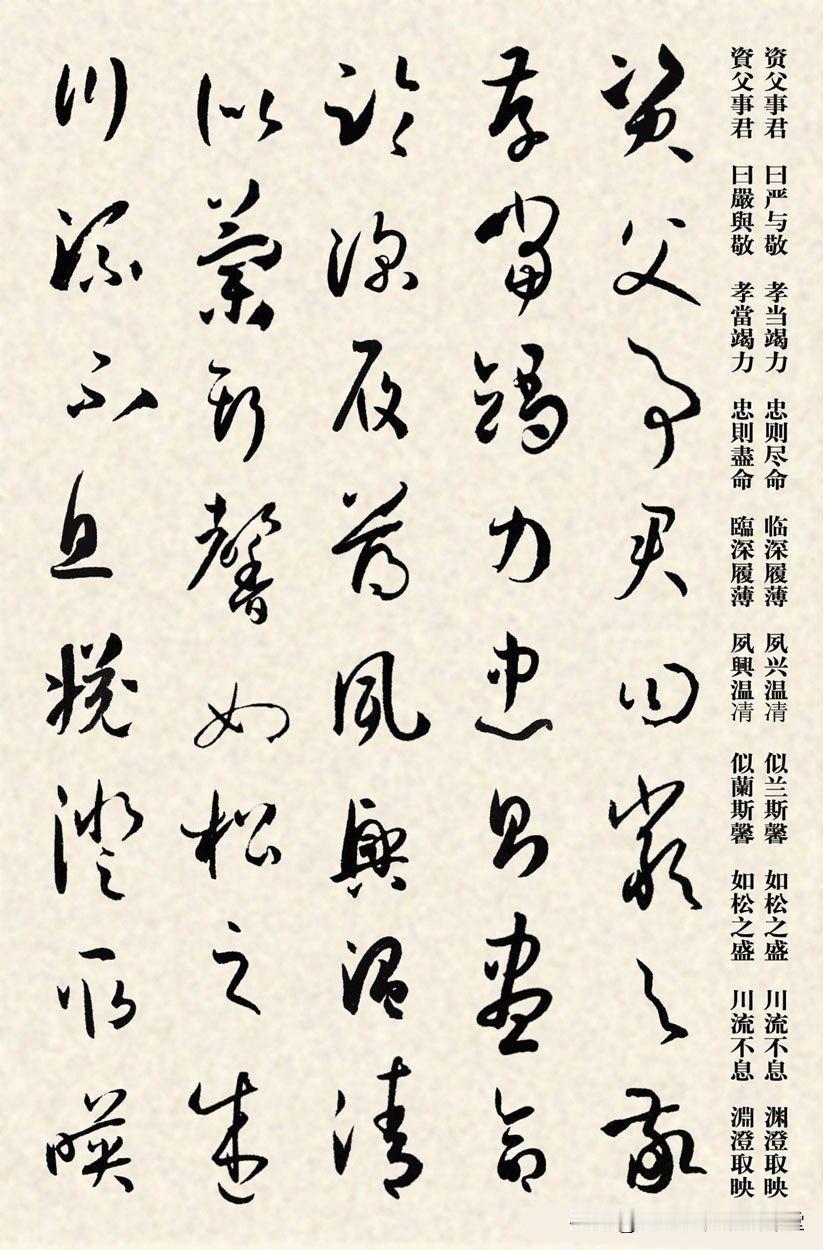 资父事君 曰严与敬 孝当竭力 忠则尽命 临深履薄 夙兴温凊 似兰斯馨 如松之盛 川流不息 渊澄取映
資父事君 曰嚴與敬 孝當竭力 忠則盡命 臨深履薄 夙興温凊 似蘭斯馨 如松之盛 川流不息 淵澄取映
資父事君曰嚴與敬
孝當竭力忠則盡命
臨深履薄夙興温清
似蘭斯馨如松之盛
川流不息淵澄取暎